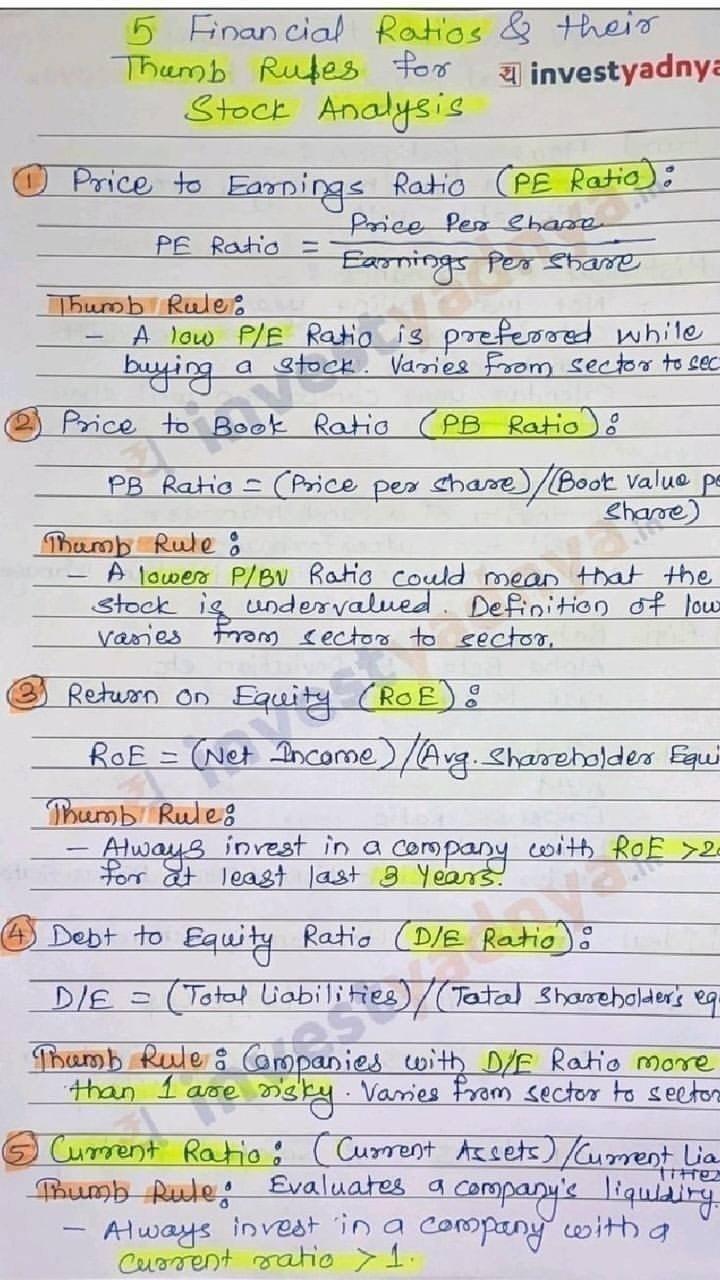 5 Financial Ratios & their
Thumb Rules for
य investyadnya
Stock Analysis
1 Price to Earnings Ratio (PE Ratio):
PE Ratio = Price Per Share
Earnings Per Share
Thumb Rule:
– A low P/E Ratio is preferred while
buying a stock. Varies from sector to sec
2 Price to Book Ratio (PB Ratio):
PB Ratio = (Price per share)/(Book value pe
share)
Thumb Rule:
– A lower P/BV Ratio could mean that the
stock is undervalued. Definition of low
varies from sector to sector.
3 Return on Equity (RoE):
RoE = (Net Income)/(Avg. Shareholder Equi
Thumb Rule:
– Always invest in a company with RoE >2
for at least last 3 Years.
4 Debt to Equity Ratio (D/E Ratio):
D/E = (Total Liabilities)/(Total Shareholder's eq
Thumb Rule: Companies with D/E Ratio more
than 1 are risky. Varies from sector to sector
5 Current Ratio: (Current Assets)/Current Lia
lities
Thumb Rule: Evaluates a company's liquidity.
– Always invest in a company with a
current ratio > 1.
य investyadnya.in
य investyadnya.in
य investyadnya.in